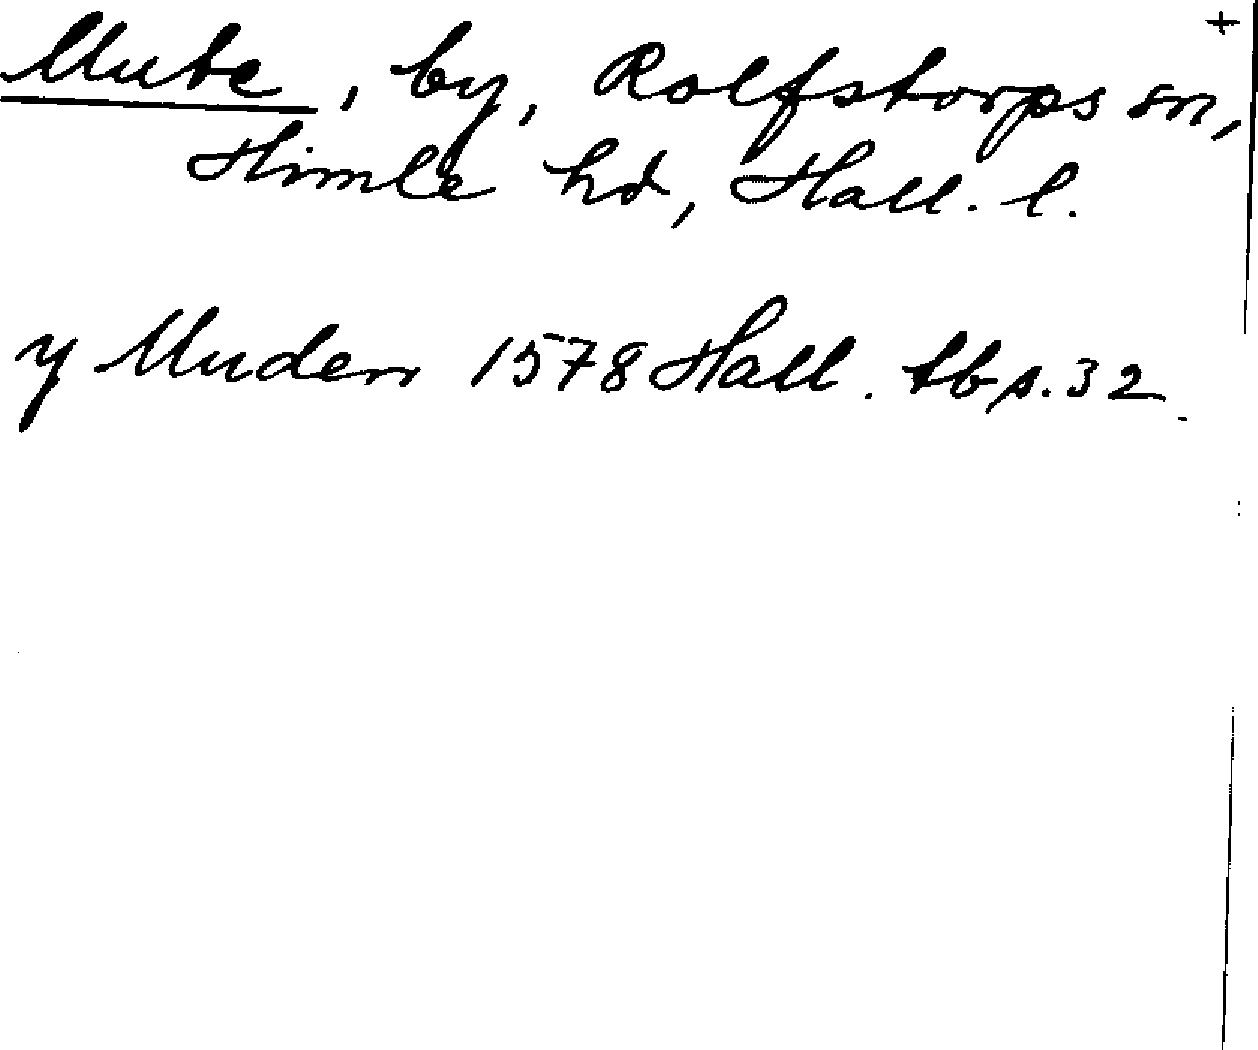 +
Mute, by, Rolfstorps sn,
Himle hd, Hall. l.
y Muden 1578 Hall. tb s. 32